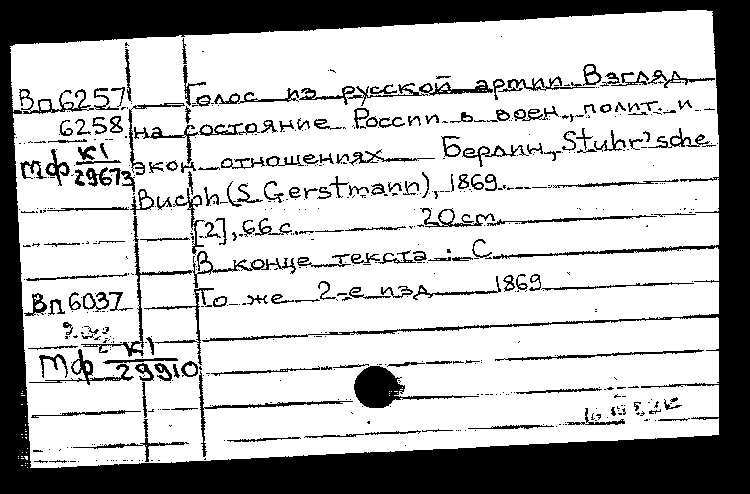 Вп6257 Голос из русской армии. Взгляд
6258 на состояние России в воен., полит. и
Мф К1/29673 экон. отношениях. Берлин, Stuhr'sche
Buchh (S. Gerstmann), 1869.
[2], 66 с. 20 cm.
В конце текста: С.
Вп6037 То же 2-е изд. 1869
Мф К1/29910